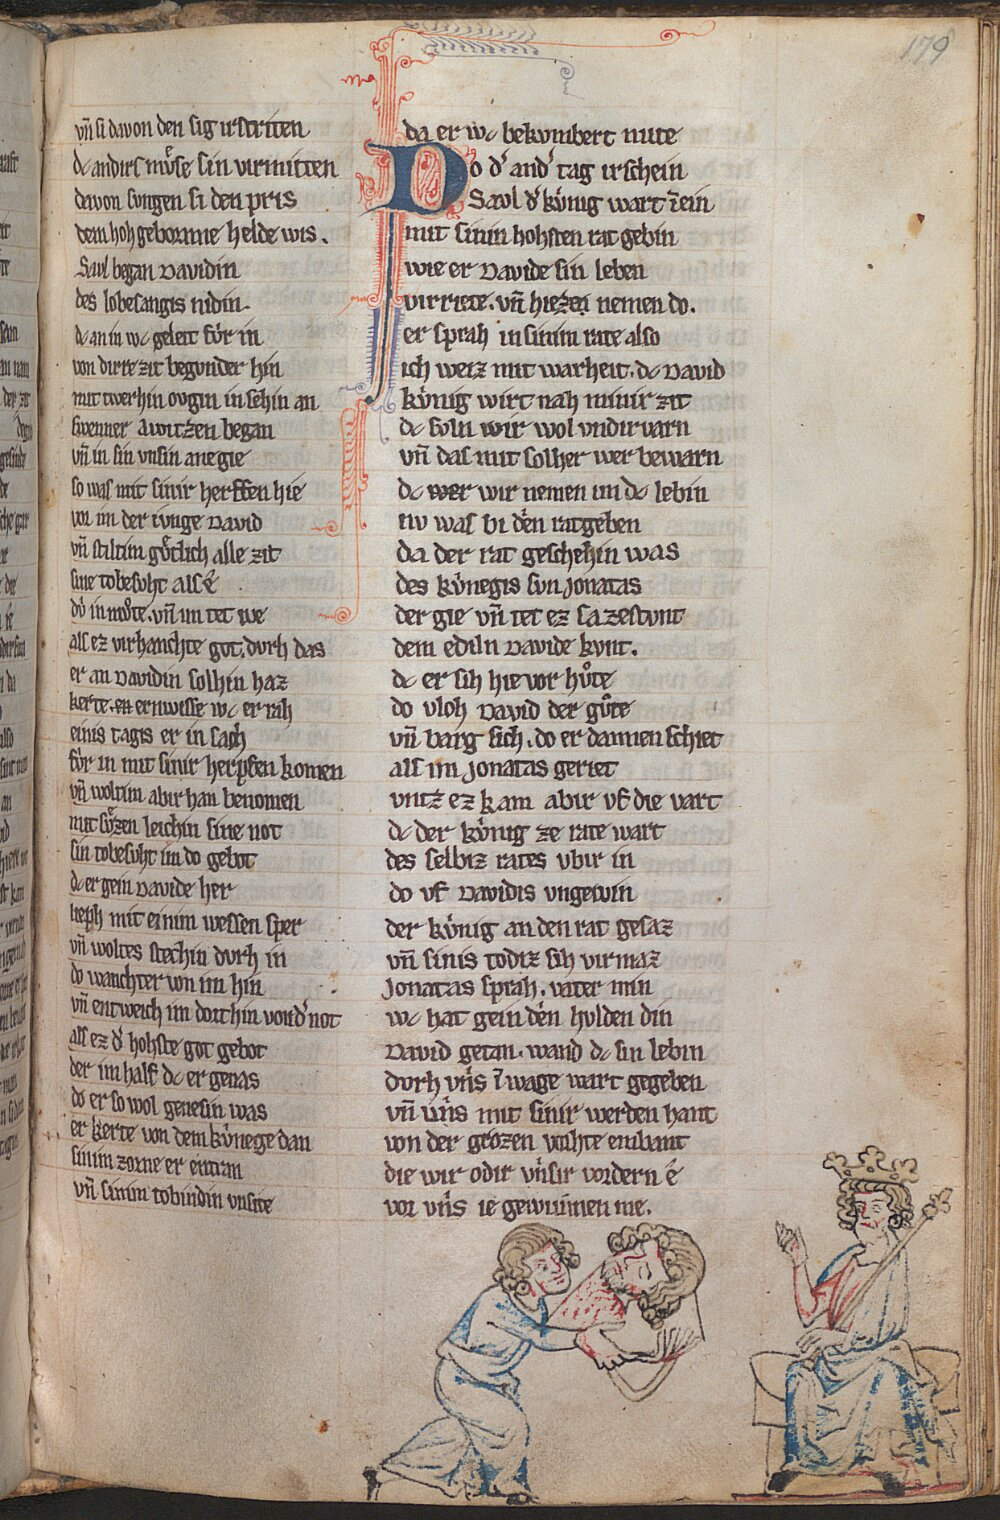 179
vn̄ si davon den sig irstriten
dc andirs mv̊se sin virmitten
davon svngen si den pris
dem hohgebornne helde wis.
Savl began Davidin
des lobesangis nidin.
dc an in wc geleit fv́r in
von dirre zit begvnder hin
mit twerhin ovgin in sehin an
swenner awitzen began
vn̄ in sin vnsin anegie
so was mit sinir herffen hie
vor im der ivnge David
vn̄ stiltim gv̊tlich alle zit
sine tobesvht als ê
dv́ in mv̊te. vn̄ im tet we
als ez virhanchte got. dvrh das
er an Davidin solhin haz
kerte. ern wisse wc er rah
einis tagis er in sach
fv́r in mit sinir herpfen komen
vn̄ woltim abir han benomen
mit sv̊zen leichin sine not
sin tobesvht im do gebot
dc er gein Davide her
lieph mit einim wessen sper
vn̄ woltes stechin dvrh in
do wanchter von im hin
vn̄ entweich im dort hin von d' not
als ez d' hohste got gebot
der im half dc er genas
do er so wol genesin was
er kerte von dem kv́nege dan
sinim zorne er entran
vn̄ sinim tobindin vnsite
da er wc bekvmbert mite
Do d' and' tag irschein
Savl d' kv́nig wart īein
mit sinin hohsten ratgebin
wie er Davide sin leben
virriete. vn̄ hiezez nemen do.
er sprah in sinim rate also
ich weiz mit warheit. dc David
kv́nig wirt nah minir zit
dc svln wir wol vndirvarn
vn̄ das mit solher wer bewarn
dc wer wir nemen im dc lebin
nv was bi den ratgeben
da der rat geschehin was
des kv́negis svn Jonatas
der gie vn̄ tet ez sa zestvnt
dem ediln Davide kvnt.
dc er sih hie vor hv̊te
do vloh David der gv̊te
vn̄ barg sich. do er dannen schiet
als im Jonatas geriet
vntz ez kam abir vf die vart
dc der kv́nig ze rate wart
des selbiz rates vbir in
do vf Davidis vngewin
der kv́nig an den rat gesaz
vn̄ sinis todiz sih virmaz
Jonatas sprah. vater min
wc hat gein den hvlden din
David getan. wand dc sin lebin
dvrh vn̓s ī wage wart gegeben
vn̄ vn̓s mit sinir werden hant
von der grozen vorhte enbant
die wir odir vn̓sir vordern ê
vor vn̓s ie gewunnen me.